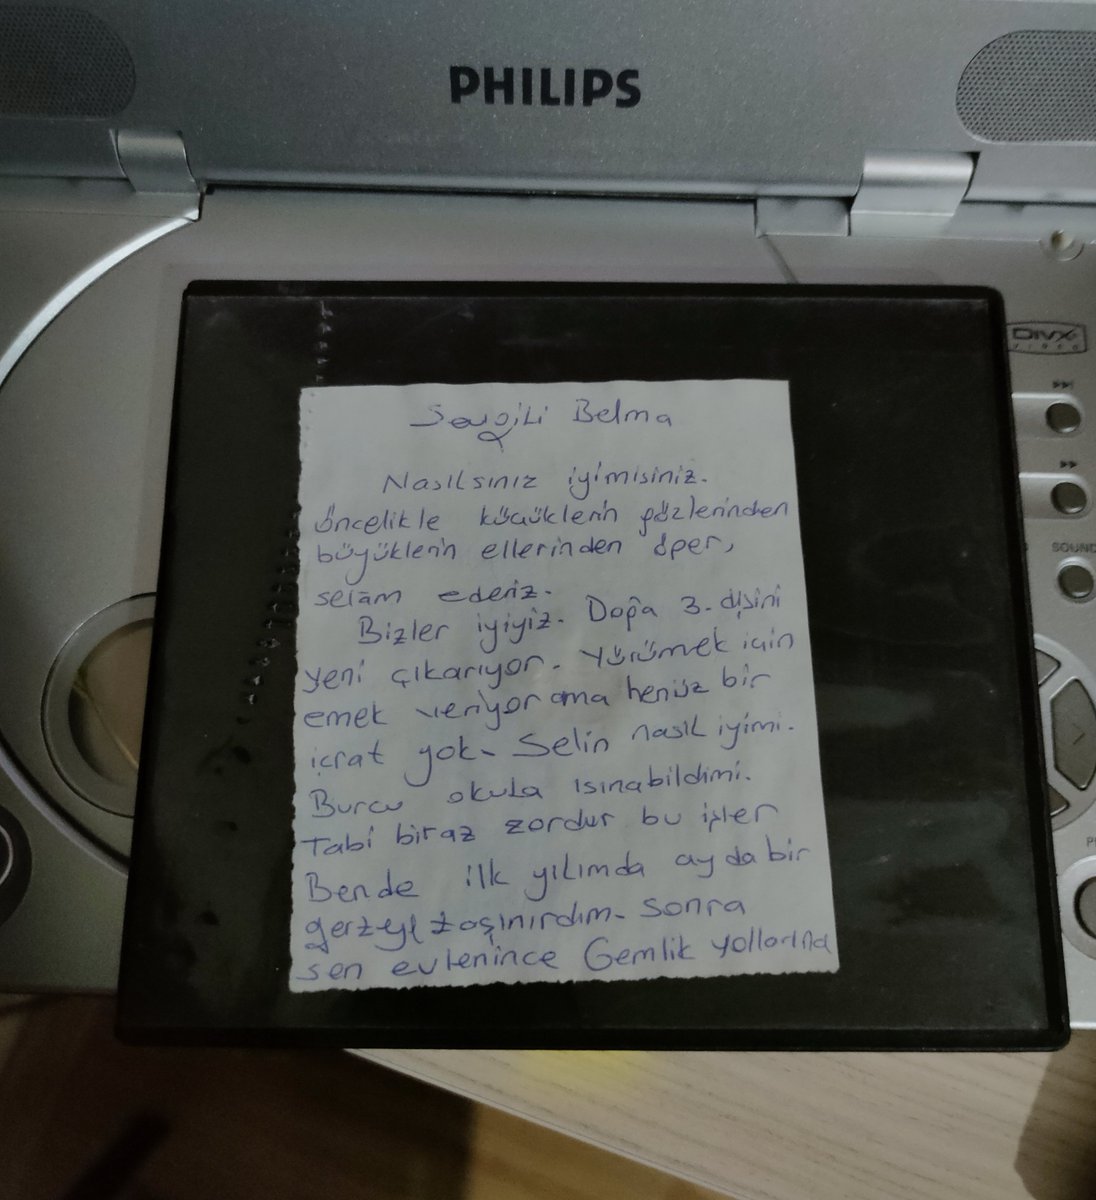 PHILIPS
DIVX
VIDEO
SOUND
Sevgili Belma
Nasılsınız iyimisiniz.
öncelikle küçüklerin gözlerinden
büyüklerin ellerinden öper,
selam ederiz.
Bizler iyiyiz. Doğa 3. dişini
yeni çıkarıyor. Yürümek için
emek veriyor ama henüz bir
icrat yok. Selin nasıl iyimi.
Burcu okula ısınabildimi.
Tabi biraz zordur bu işler
Bende ilk yılımda ayda bir
gerzeye taşınırdım. Sonra
sen evlenince Gemlik yollarına